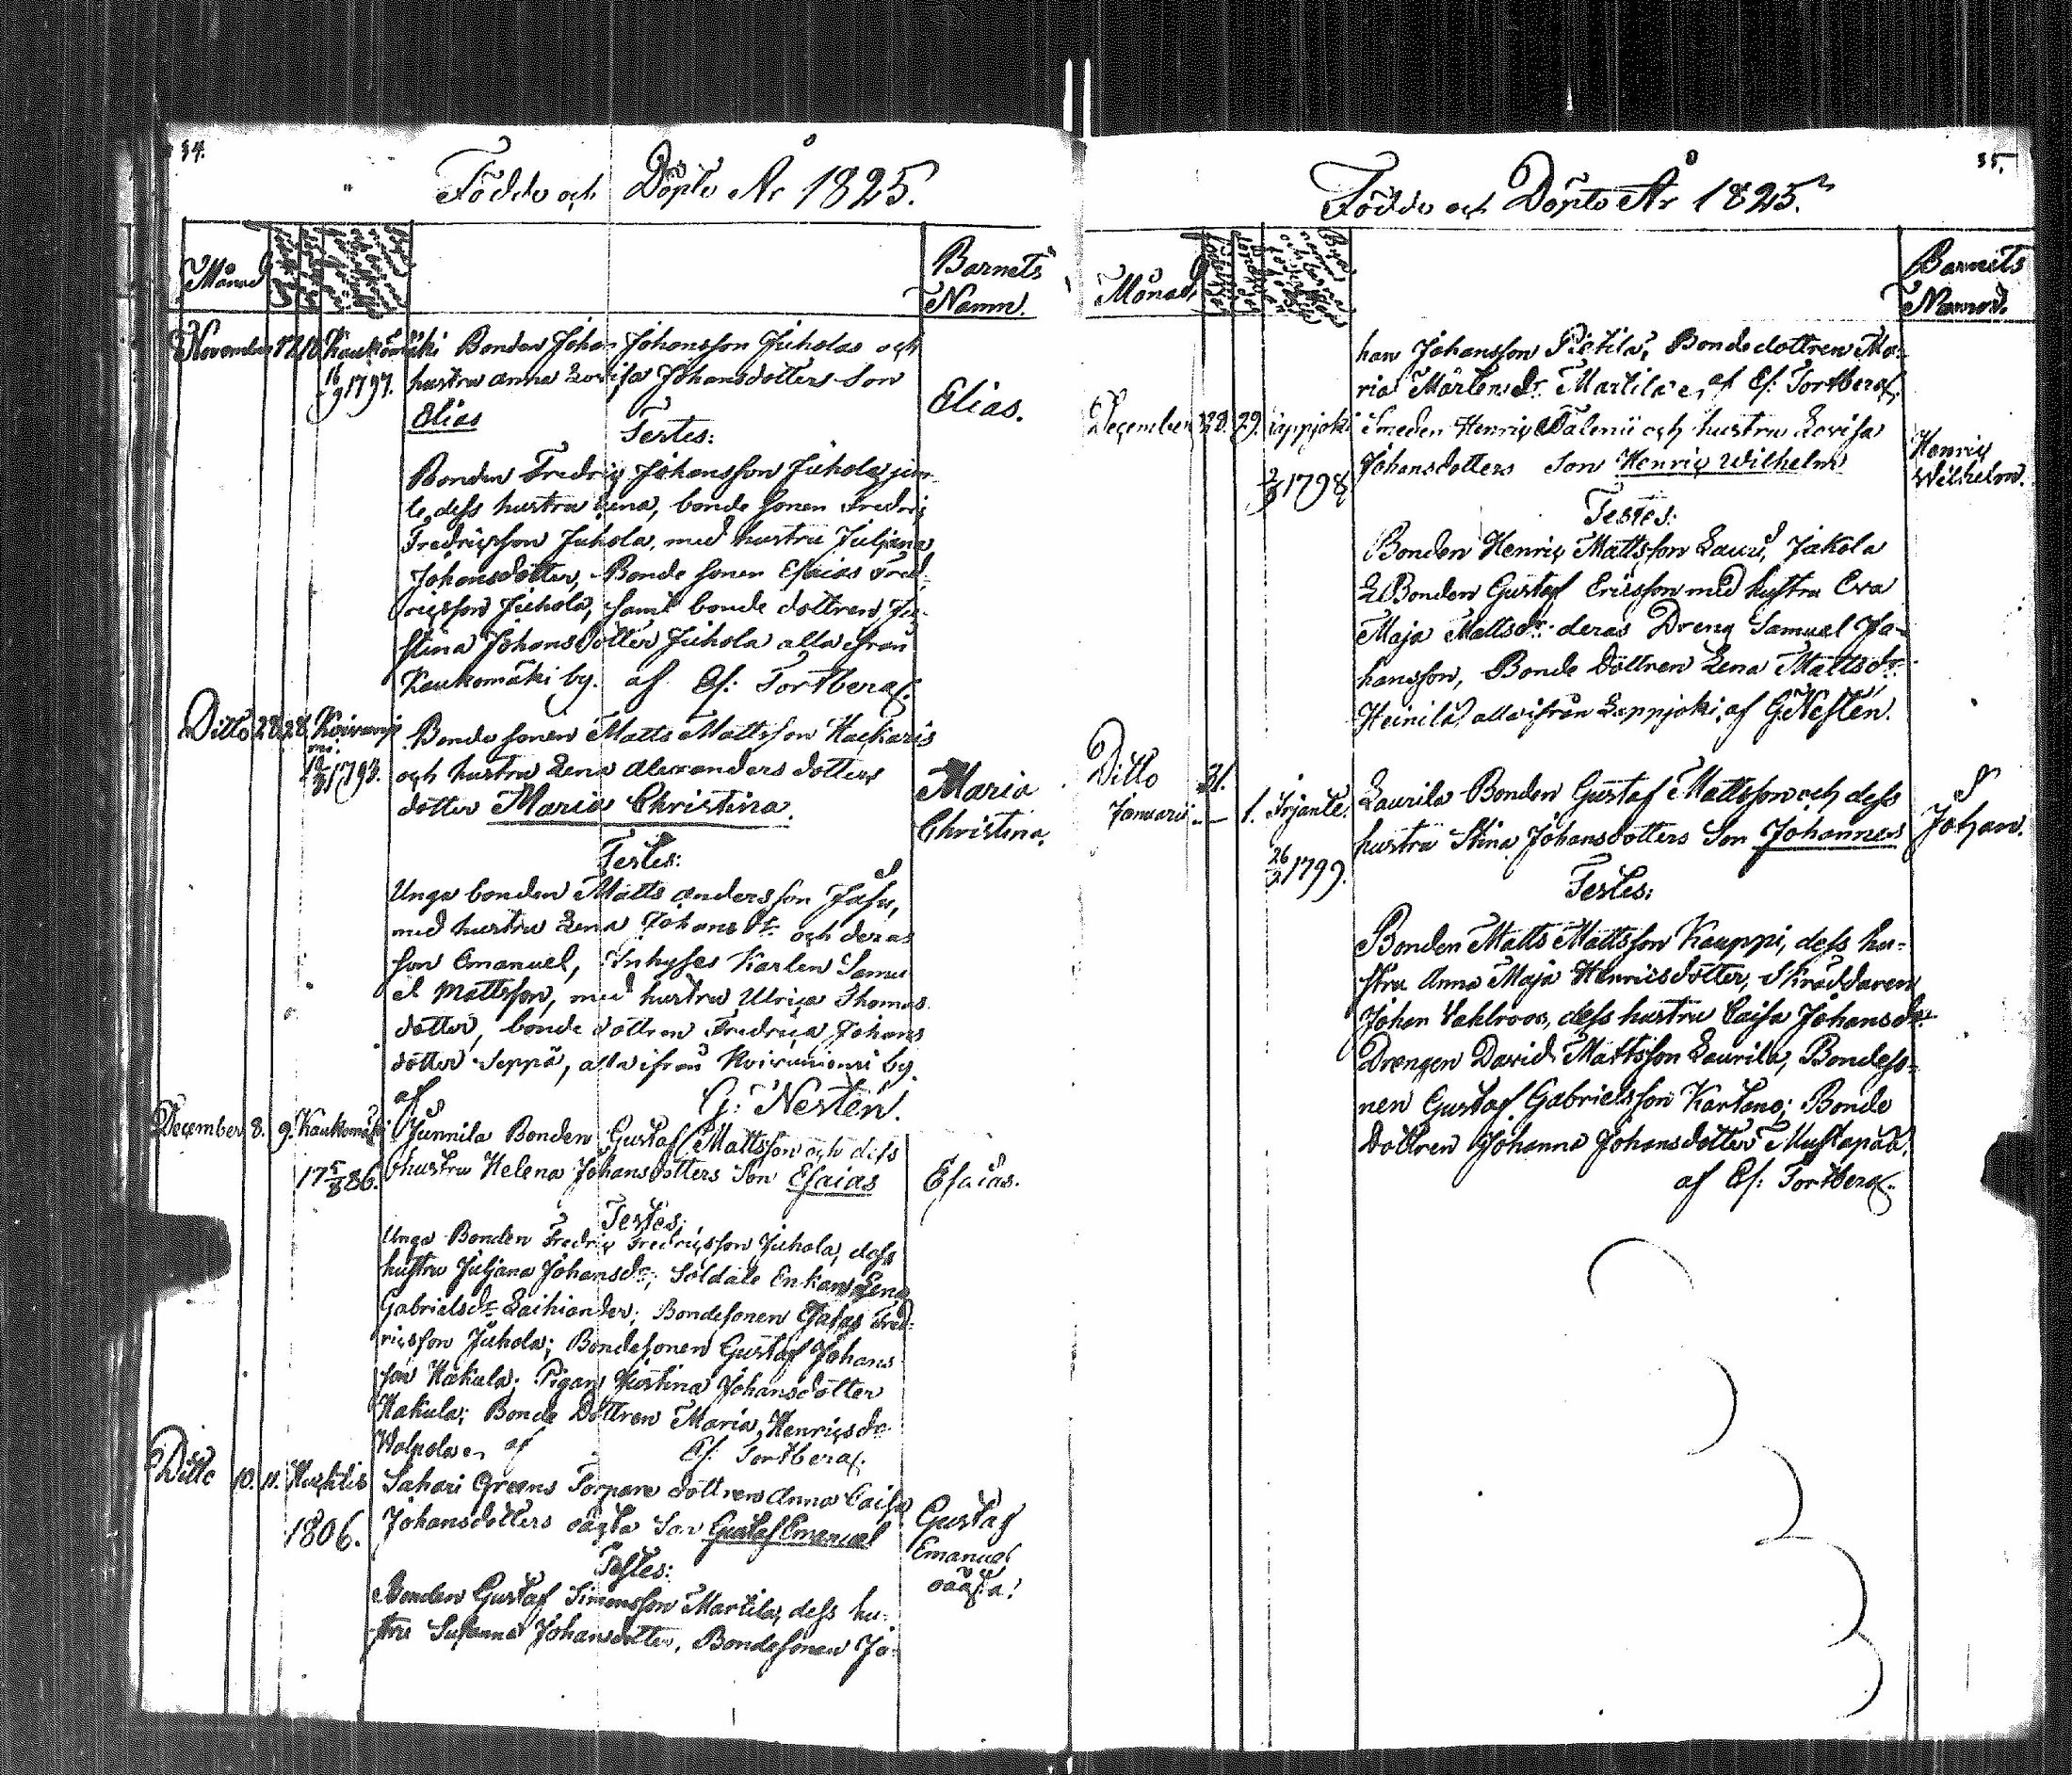 34.
Födde och Döpte År 1825.
Månad
Barnets
Namn.
November 17. 18. Kaukomäki Bonden Johan Johansson Juholas och
16/9 1797. hustru Anna Lovisa Johansdotters Son
Elias
Elias.
Testes:
Bonden Fredriç Johansson Juhola jem-
te dess hustru Lena, bonde sonen Fredriç
Fredriçsson Juhola, med hustru Juliana
Johansdotter, Bonde sonen Esaias Fred-
riçsson Juhola, samt bonde dottren Ju-
stina Johansdotter Juhola alla ifrån
Kaukomäki by. af Es: Tortberg.
Ditto 28. 28. Bonde sonen Matts Mattsson Hackaris
1793. och hustru Lena Alexanders dotters
dotter Maria Christina.
Maria
Christina.
Testes:
Unge bonden Matts Andersson Jass,
med hustru Lena Johans dr. och deras
son Emanuel, Inhyses Karlen Samu
el Mattsson, med hustru Ulriça Thomas
dotter, bonde dottren Fredriça Johans
dotter Seppä, alla ifrån Koivuniemi by
af G: Nestén.
December 8. 9. Kaukomäki Junnila Bonden Gustaf Mattsson och dess
17 5/8 86. hustru Helena Johansdotters Son Esaias
Esaias.
Testes:
Unge Bonden Fredriç Fredriçsson Juhola, dess
hustru Juljana Johansdr.; Soldate Enkan Lena
Gabrielsdr. Laihiander; Bondesonen Esaias Fred-
riçsson Juhola; Bondesonen Gustaf Johans
son Hakula; Pigan Justina Johansdotter
Hakula; Bonde Dottren Maria Henriçsdr
af Es: Tortberg.
Ditto 10. 11. Huhtis Sahari Greens Torpare dottren Anna Caisa
1806. Johansdotters oägta Son Gustaf Emanuel
Gustaf
Emanuel
oägta!
Testes:
Bonden Gustaf Simonsson Martila, dess hu-
stru Susanna Johansdotter, Bondesonen Jo-
35.
Födde och Döpte År 1825.
Månad
Barnets
Namn.
han Johansson Pietilä, Bondedottren Ma-
ria Mårtensdr. Martila, af Es: Tortberg.
December 28. 29. Lappjoki Smeden Henriç Talenii och hustru Lovisa
1798 Johansdotters Son Henriç Wilhelm
Henriç
Wilhelm.
Testes:
Bonden Henriç Mattsson Lauri, Jakola
Bonden Gustaf Ericsson med hustru Eva
Maja Mattsdr. deras Dreng Samuel Jo-
hansson, Bonde dottren Lena Mattsdr.
Heinilä alla ifrån Lappjoki, af G: Nestén.
Ditto 31.
Januarii — 1. Irjante. Laurila Bonden Gustaf Mattsson och dess
1799. hustru Stina Johansdotters Son Johannes
Johan.
Testes:
Bonden Matts Mattsson Kauppi, dess hu-
stru Anna Maja Henricsdotter, Skräddaren
Johan Vahlroos, dess hustru Caisa Johansdr.
Drengen David Mattsson Laurila, Bondeso-
nen Gustaf Gabrielsson Kartano; Bonde
dottren Johanna Johansdotter Mustapää.
af Es: Tortberg.